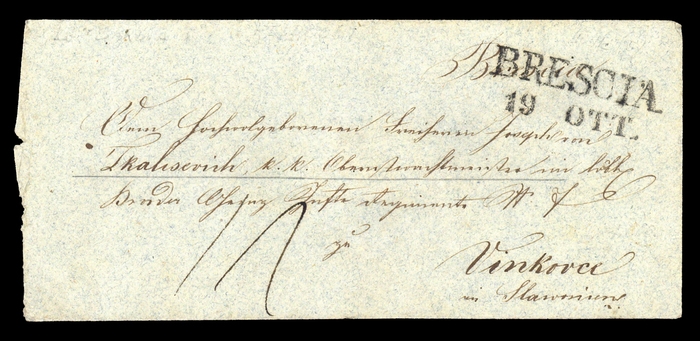 BRESCIA
19 OTT.
Dem Hochwolgeborenen Freiherrn Joseph
Tkalcsevich k. k. Oberstwachtmeister im löbl
Bruder Regiments N. 7
zu
Vinkovce
in Slawonien